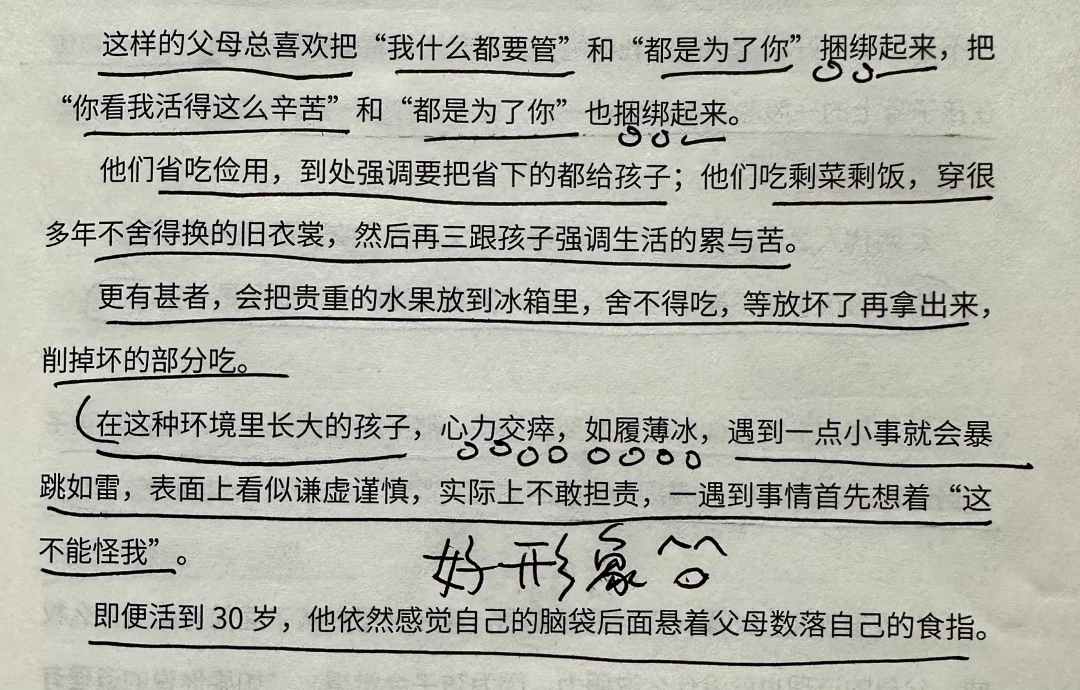 这样的父母总喜欢把“我什么都要管”和“都是为了你”捆绑起来，把
“你看我活得这么辛苦”和“都是为了你”也捆绑起来。
他们省吃俭用，到处强调要把省下的都给孩子；他们吃剩菜剩饭，穿很
多年不舍得换的旧衣裳，然后再三跟孩子强调生活的累与苦。
更有甚者，会把贵重的水果放到冰箱里，舍不得吃，等放坏了再拿出来，
削掉坏的部分吃。
在这种环境里长大的孩子，心力交瘁，如履薄冰，遇到一点小事就会暴
跳如雷，表面上看似谦虚谨慎，实际上不敢担责，一遇到事情首先想着“这
不能怪我”。
好形象
即便活到 30 岁，他依然感觉自己的脑袋后面悬着父母数落自己的食指。